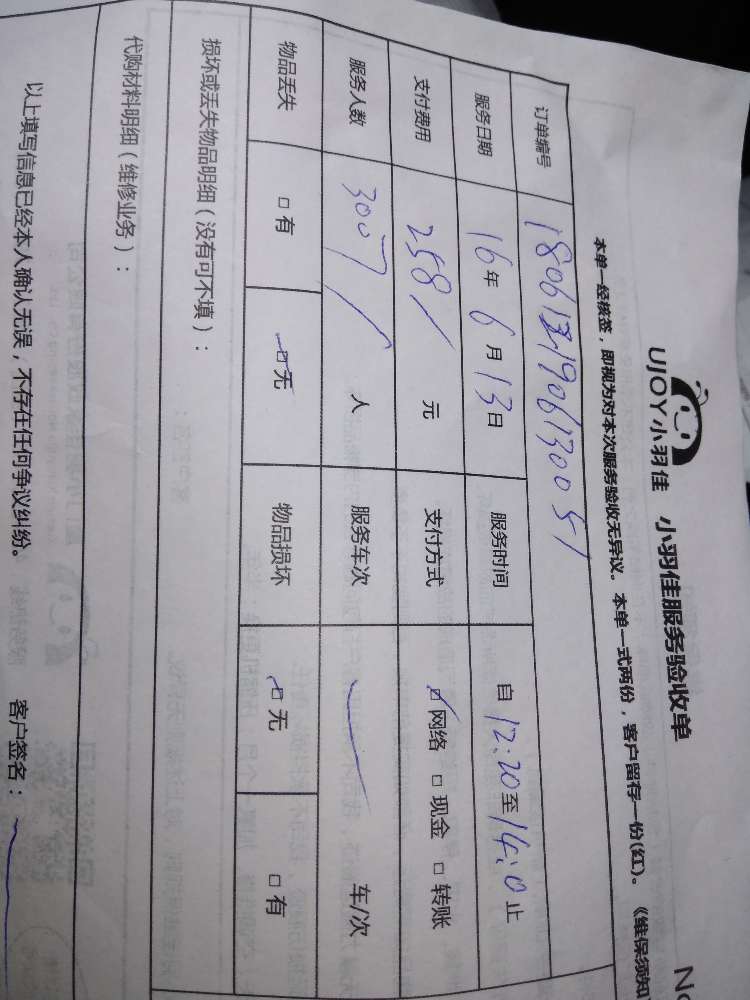 UJOY小羽佳 小羽佳服务验收单 N
本单一经核签，即视为对本次服务验收无异议。本单一式两份，客户留存一份(红)。《维保须知
订单编号
服务日期 16年 6月 13日 服务时间 自 12:20 至 14:0 止
支付费用 258/ 元 支付方式 ☑网络 □现金 □转账
服务人数 人 服务车次 车/次
物品丢失 □有 ☑无 物品损坏 ☑无 □有
损坏或丢失物品明细（没有可不填）：
代购材料明细（维修业务）：
以上填写信息已经本人确认无误，不存在任何争议纠纷。 客户签名：